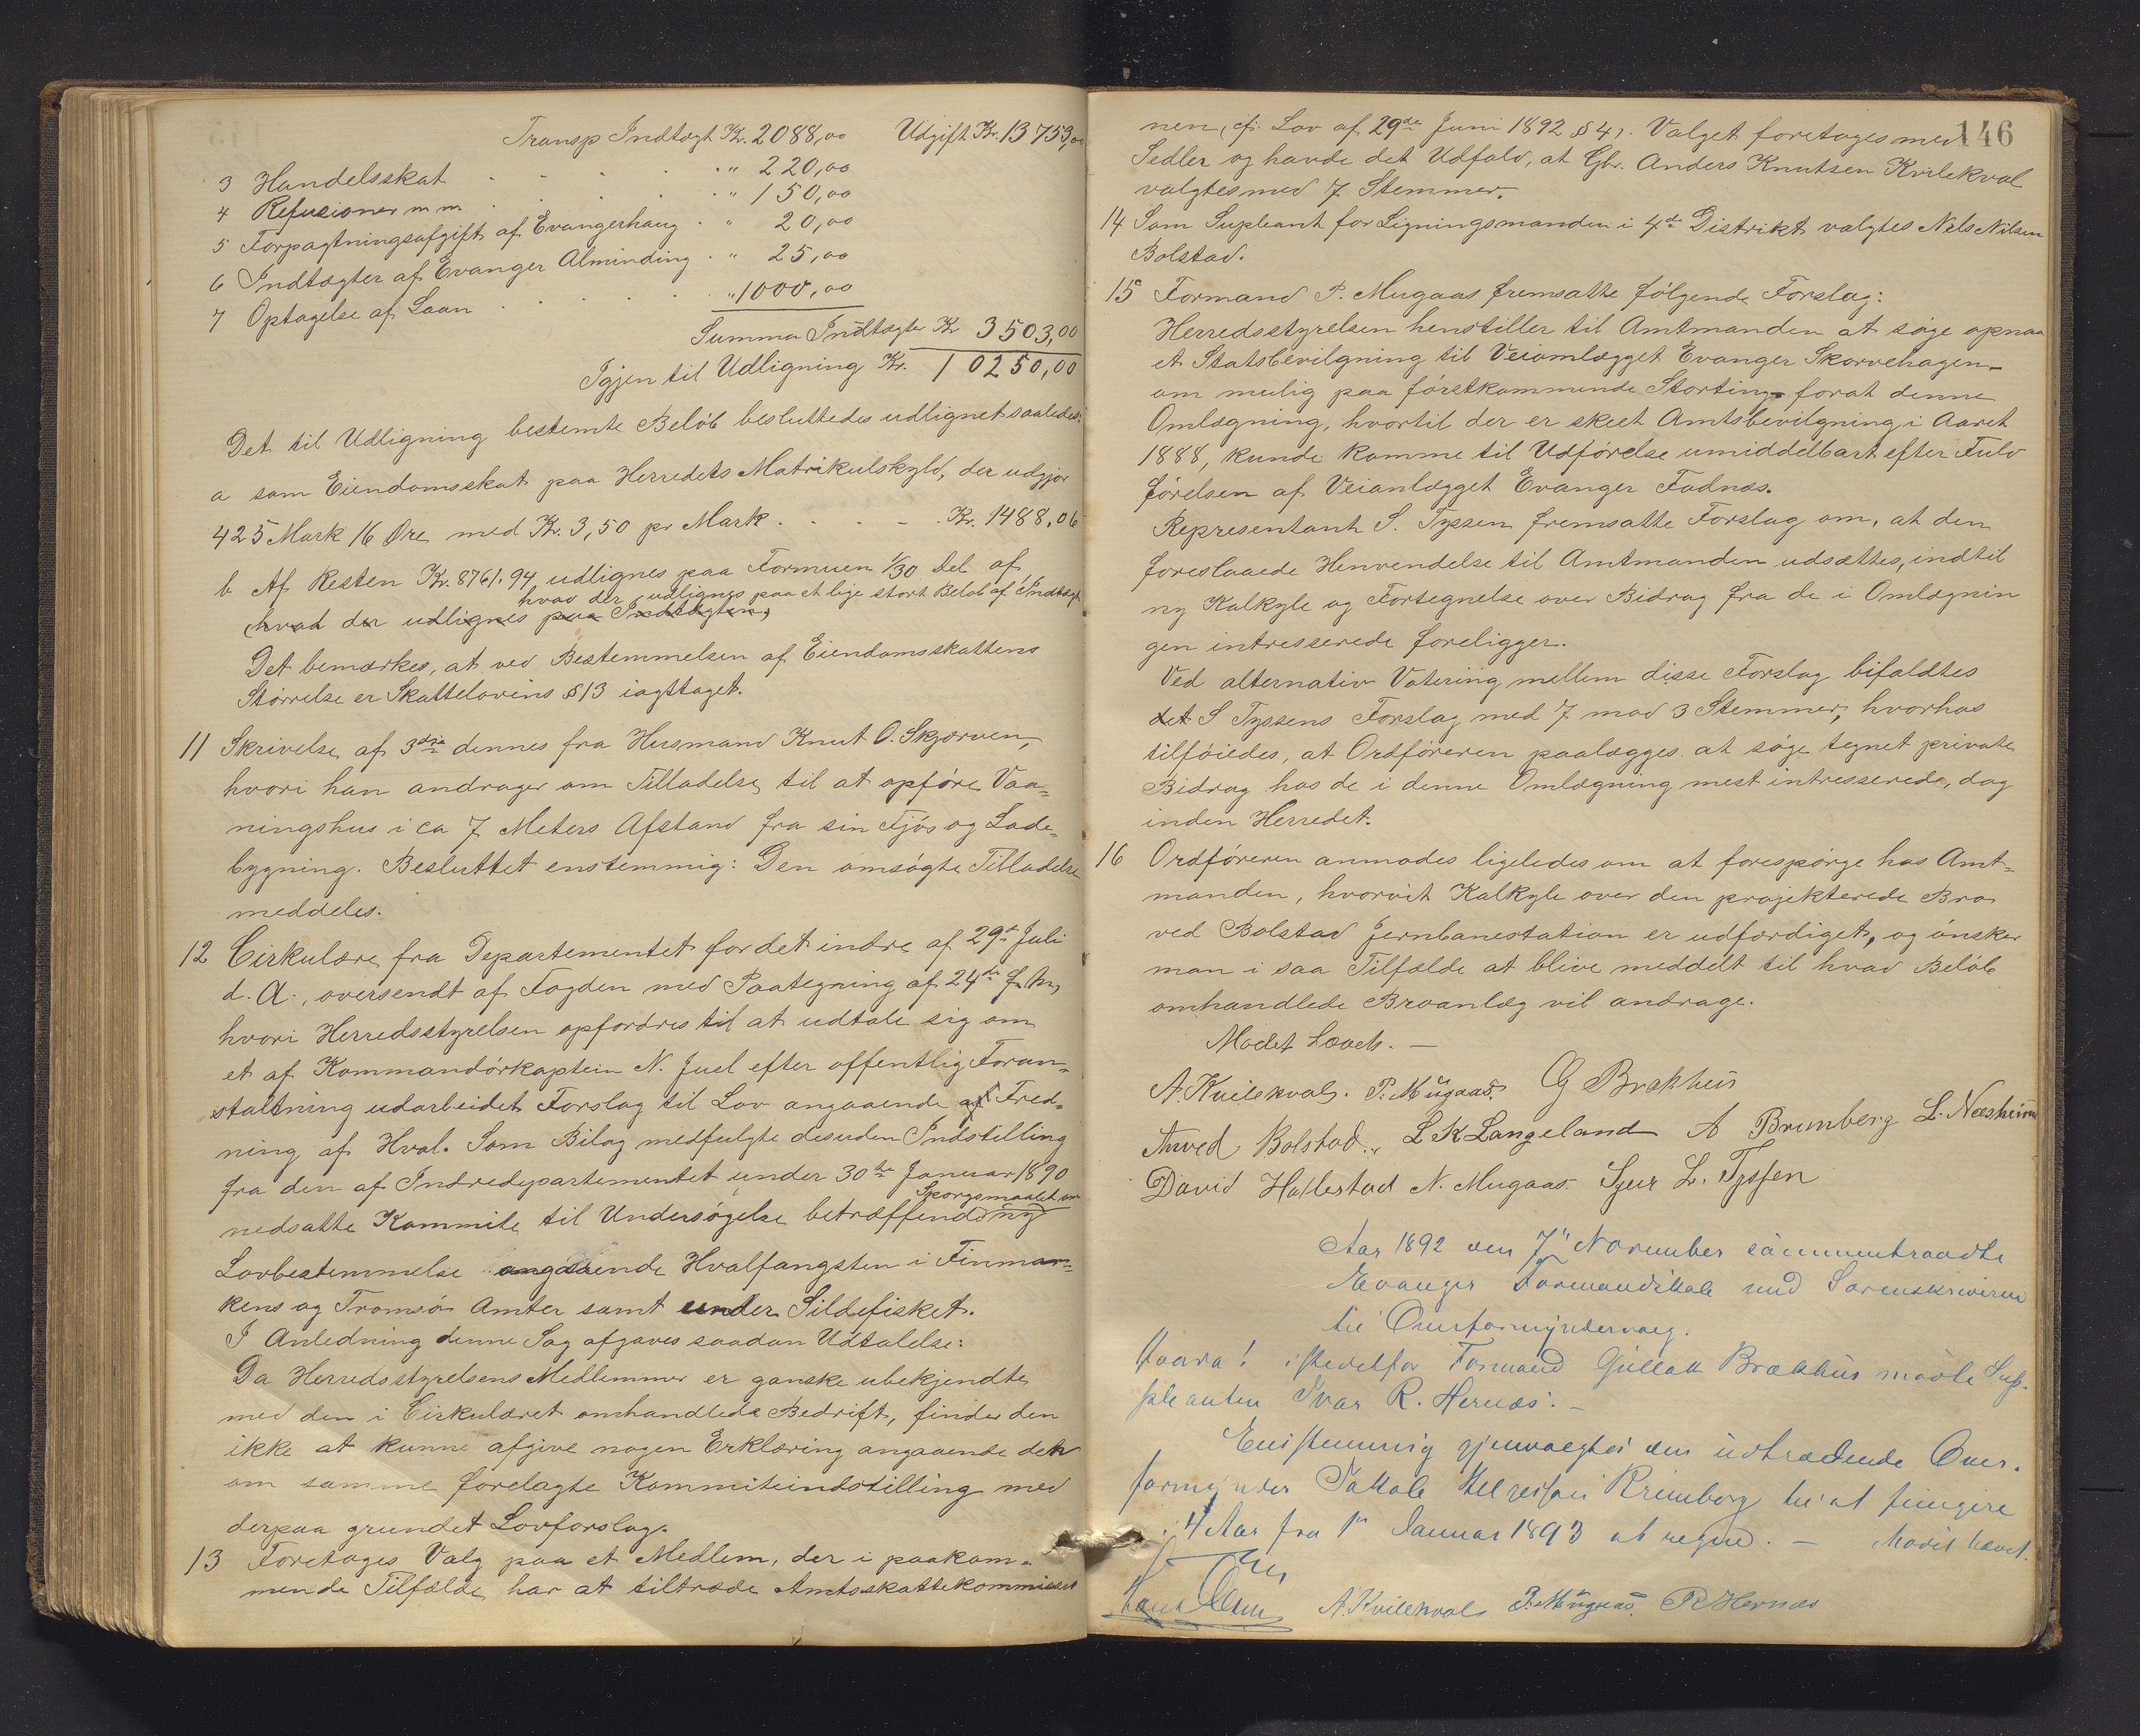 Transp Indtægt Kr. 2088,00 Udgift Kr. 13753,00
3 Handelsskat . . . . . " 220,00
4 Refusioner m m . . . . " 150,00
5 Forpagtningsafgift af Evangerhaug . " 20,00
6 Indtægter af Evanger Alminding . " 25,00
7 Optagelse af Laan . . . . . " 1000,00
Summa Indtægter Kr 3503,00
Igjen til Udligning Kr. 10250,00
Det til Udligning bestemte Beløb besluttedes udlignet saaledes:
a som Eiendomsskat paa Herredets Matrikulskyld, der udgjør
425 Mark 16 Øre med Kr. 3,50 pr Mark . . . . . Kr. 1488.06
b Af Resten Kr. 8761.94 udlignes paa Formuen 1/30 Del af
hvad der udlignes paa et lige stort Beløb af Indtægt
(hvad der udlignes paa Indtægten)
Det bemærkes, at ved Bestemmelsen af Eiendomsskattens
Størrelse er Skattelovens § 13 iagttaget.
11 Skrivelse af 3die dennes fra Husmand Knut O. Skjerven,
hvori han andrager om Tilladelse til at opføre Vaa=
ningshus i ca 7 Meters Afstand fra sin Fjøs og Lade=
bygning. Besluttet enstemmig: Den omsøgte Tilladelse
meddeles.
12 Cirkulære fra Departementet for det indre af 29de Juli
d. A., oversendt af Fogden med Paategning af 24de f. M,
hvori Herredsstyrelsen opfordres til at udtale sig om
et af Kommandørkaptein N. Juel efter offentlig Foran=
staltning udarbeidet Forslag til Lov angaaende af Fred=
ning af Hval. Som Bilag medfulgte desuden Indstilling
fra den af Indredepartementet under 30te Januar 1890
Spørgsmaalet om
nedsatte Kommite til Undersøgelse betræffende ny
Lovbestemmelse angaaende Hvalfangsten i Finmar=
kens og Tromsø Amter samt under Sildefisket.
I Anledning denne Sag afgaves saadan Udtalelse:
Da Herredsstyrelsens Medlemmer er ganske ubekjendte
med den i Cirkulæret omhandlede Bedrift, finder den
ikke at kunne afgive nogen Erklæring angaaende den
om samme forelagte Kommiteindstilling med
derpaa grundet Lovforslag.
13 Foretages Valg paa et Medlem, der i paakom=
mende Tilfælde har at tiltræde Amtsskattekommissio
146
nen, cfr. Lov af 29de Juni 1892 § 41. Valget foretages med
Sedler og havde det Udfald, at Gbr. Anders Knutsen Kvilekval
valgtes med 7 Stemmer.
14 Som Supleant for Ligningsmanden i 4de Distrikt valgtes Nils Nilsen
Bolstad.
15 Formand P. Mugaas fremsatte følgende Forslag:
Herredsstyrelsen henstiller til Amtmanden at søge opnaa
et Statsbevilgning til Veiomlægget Evanger Skorvehagen
om mulig paa førstkommende Storting forat denne
Omlægning, hvortil der er skeet Amtsbevilgning i Aaret
1888, kunde komme til Udførelse umiddelbart efter Fuld
førelsen af Veianlægget Evanger Fadnæs.
Representant S. Tyssen fremsatte Forslag om, at den
foreslaaede Henvendelse til Amtmanden udsættes, indtil
ny Kalkyle og Fortegnelse over Bidrag fra de i Omlægnin
gen intresserede foreligger.
Ved alternativ Votering mellem disse Forslag bifaldtes
det S Tyssens Forslag med 7 mod 3 Stemmer, hvorhos
tilføiedes, at Ordføreren paalægges at søge tegnet private
Bidrag hos de i denne Omlægning mest intresserede, dog
inden Herredet.
16 Ordføreren anmodes ligeledes om at forespørge hos Amt=
manden, hvorvit Kalkyle over den projekterede Bro
ved Bolstad Jernbanestation er udfærdiget, og ønsker
man i saa Tilfælde at blive meddelt til hvad Beløb
omhandlede Broanlæg vil andrage.
Mødet hævet. —
A. Kvilekval. P. Mugaas. G Brækhus
Amed Bolstad. L K Langeland A Brunborg L. Næsheim
David Hallestad N. Mugaas. Sjur L. Tyssen
Aar 1892 den 7de November sammentraadte
Evanger Formandskab med Sorenskriveren
til Overformyndervalg.
istedetfor Formand Gullak Brækhus mødte Sup-
pleanten Ivar R. Hernæs. —
Enstemmig gjenvalgtes den udtrædende Over-
formynder Brunborg til at fungere
i 4 Aar fra 1ste Januar 1893 at regne. — Mødet hævet.
A. Kvilekval P. Mugaas. R Hernæs